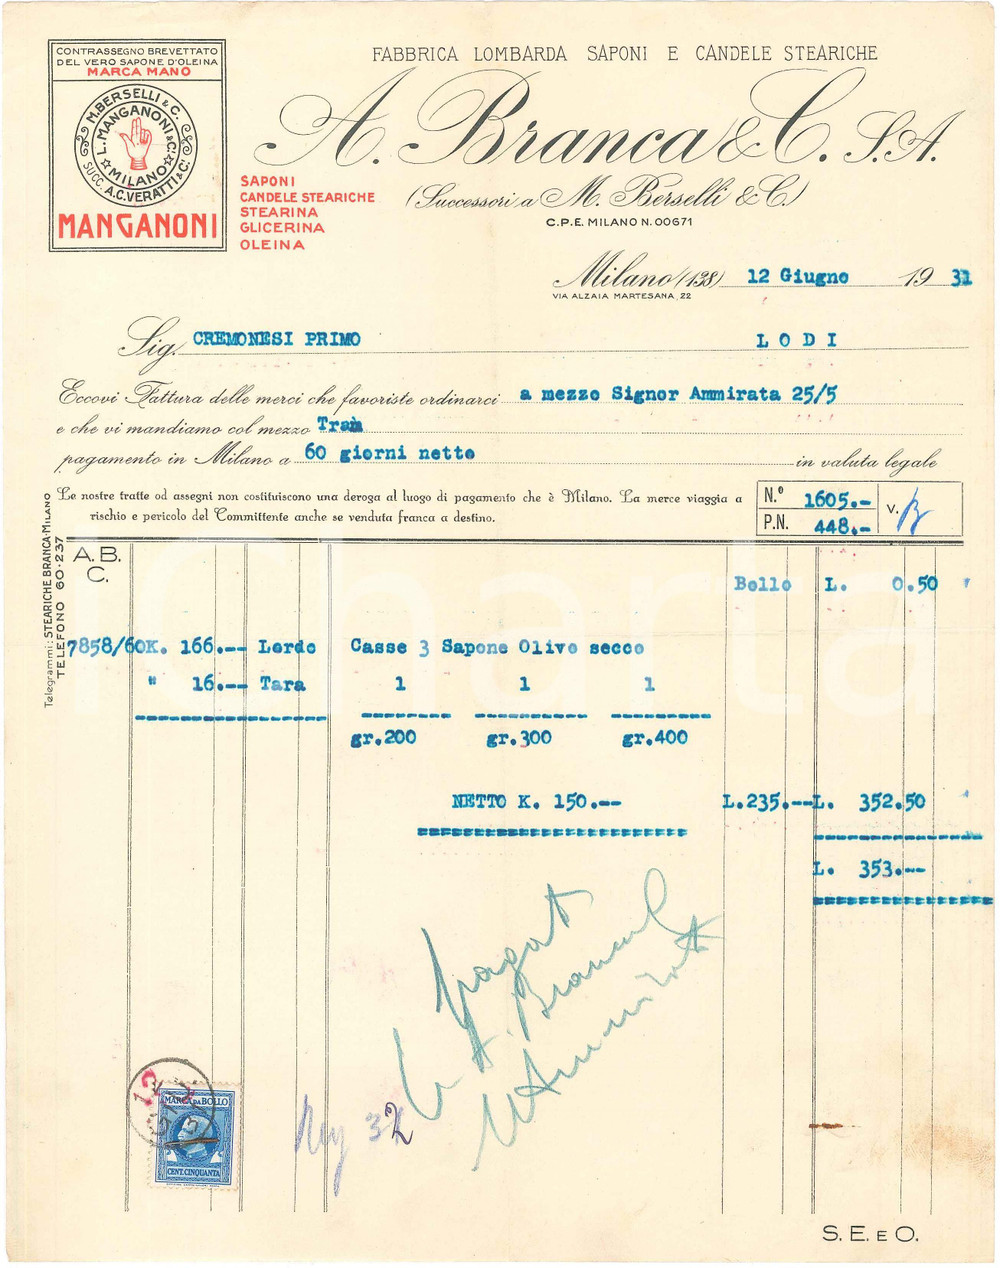 CONTRASSEGNO BREVETTATO
DEL VERO SAPONE D'OLEINA
MARCA MANO
M. BERSELLI & C.
L. MANGANONI & C.
MILANO
SUCC. A.C. VERATTI & C.
MANGANONI
FABBRICA LOMBARDA SAPONI E CANDELE STEARICHE
A. Branca & C. S.A.
(Successori a M. Berselli & C.)
C.P.E. MILANO N. 00671
SAPONI
CANDELE STEARICHE
STEARINA
GLICERINA
OLEINA
Milano (138) 12 Giugno 1931
VIA ALZAIA MARTESANA, 22
Sig. CREMONESI PRIMO LODI
Eccovi Fattura delle merci che favoriste ordinarci a mezzo Signor Ammirata 25/5
e che vi mandiamo col mezzo Tram
pagamento in Milano a 60 giorni netto in valuta legale
Le nostre tratte od assegni non costituiscono una deroga al luogo di pagamento che è Milano. La merce viaggia a
rischio e pericolo del Committente anche se venduta franca a destino.
N.º 1605.- V.
P.N. 448.-
Telegrammi: STEARICHE BRANCA-MILANO
TELEFONO 60-237
A.B.
C.
Bollo L. 0.50
7858/60K. 166.-- Lordo Casse 3 Sapone Olivo secco
" 16.-- Tara 1 1 1
gr.200 gr.300 gr.400
NETTO K. 150.-- L.235.-- L. 352.50
L. 353.--
pagat
A. Branca
Ammirata
Reg 32
MARCA DA BOLLO
CENT. CINQUANTA
S. E. E O.
iCharta